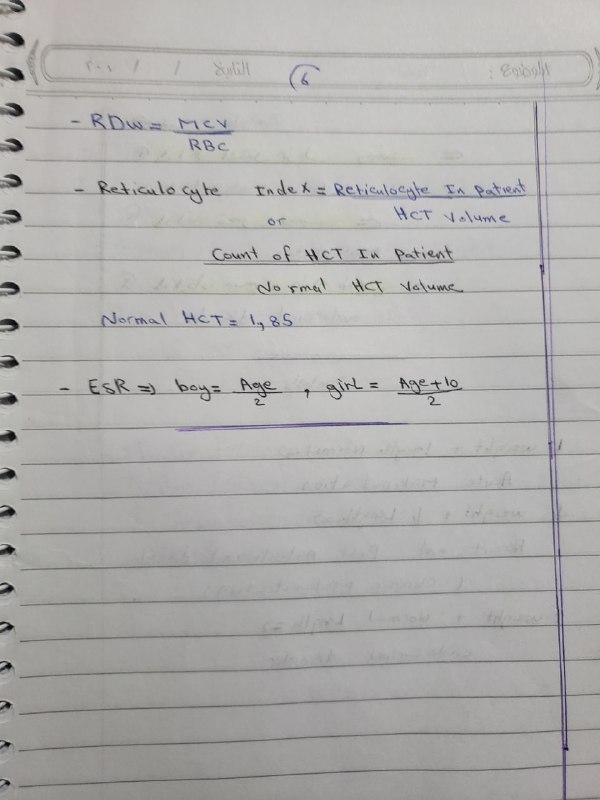 الموضوع : التاريخ / / ٢٠٠
6
- RDW = MCV
RBC
- Reticulocyte Index = Reticulocyte In patient
HCT Volume
or
Count of HCT In patient
Normal HCT Volume
Normal HCT = 1,85
- ESR => boy = Age/2 , girl = Age+10/2